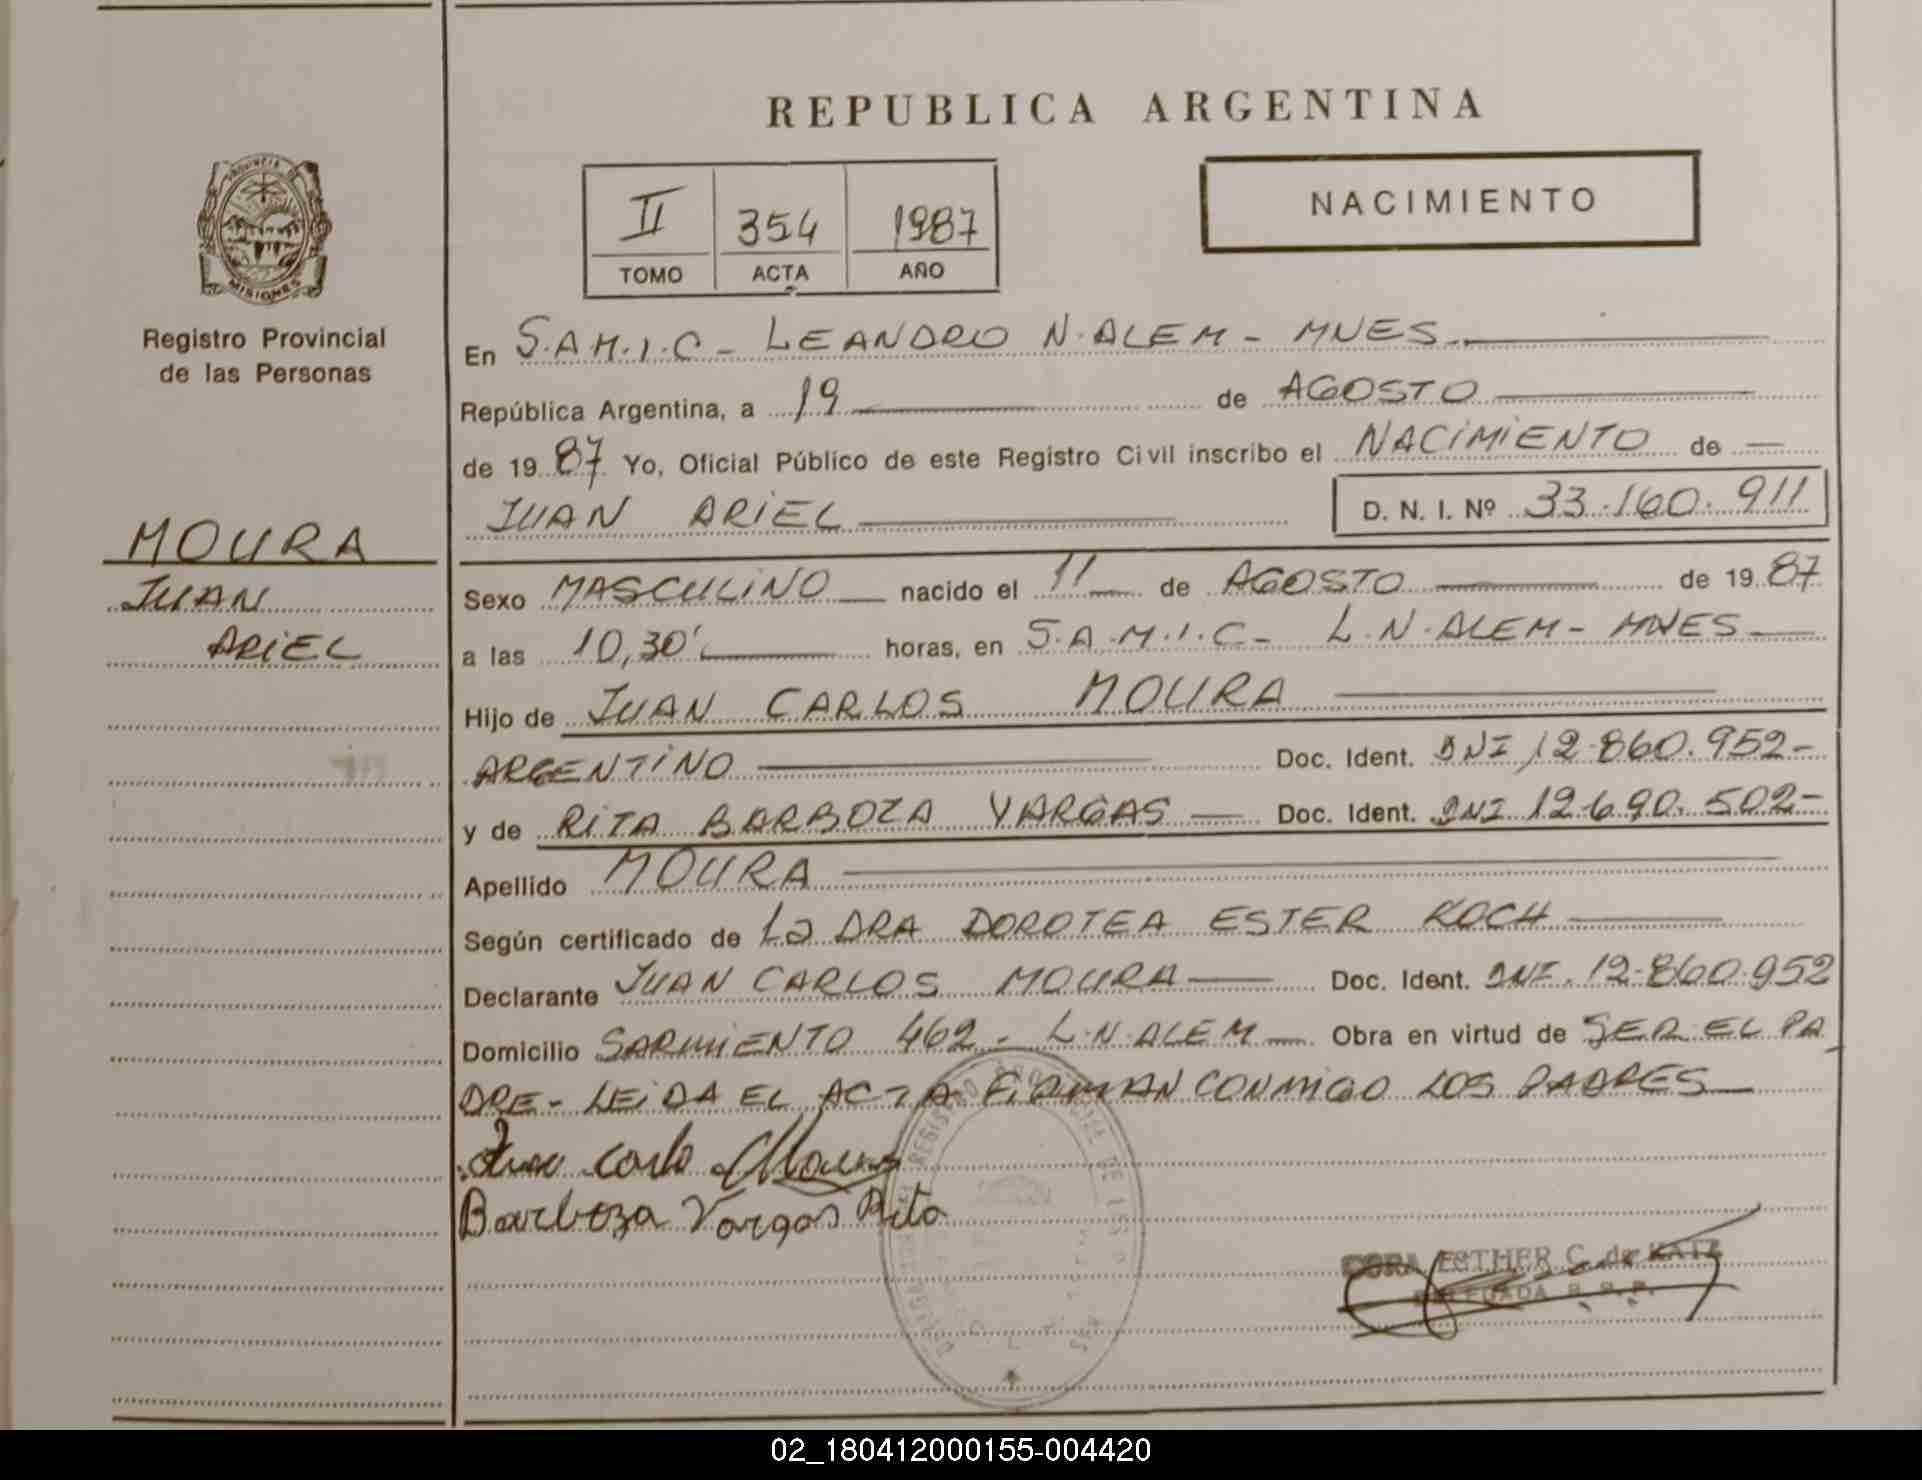 REPUBLICA ARGENTINA
II 354 1987
TOMO ACTA AÑO
NACIMIENTO
PROVINCIA DE
MISIONES
Registro Provincial
de las Personas
MOURA
JUAN
ARIEL
En S.A.M.I.C - LEANDRO N. ALEM - MNES
República Argentina, a 19 de AGOSTO
de 19 87 Yo, Oficial Público de este Registro Civil inscribo el NACIMIENTO de
JUAN ARIEL D. N. I. Nº 33.160.911
Sexo MASCULINO nacido el 11 de AGOSTO de 19 87
a las 10,30' horas, en S.A.M.I.C - L.N. ALEM - MNES
Hijo de JUAN CARLOS MOURA
ARGENTINO Doc. Ident. DNI 12.860.952-
y de RITA BARBOZA VARGAS Doc. Ident. DNI 12.690.502-
Apellido MOURA
Según certificado de La DRA DOROTEA ESTER KOCH
Declarante JUAN CARLOS MOURA Doc. Ident. DNI. 12.860.952
Domicilio SARMIENTO 462 - L.N. ALEM Obra en virtud de SER EL PA
DRE - LEIDA EL ACTA FIRMAN CONMIGO LOS PADRES
Juan Carlo Moura
Barboza Vargas Rita
ESTHER C. de KATZ
DELEGADA R. P. P.
02_180412000155-004420